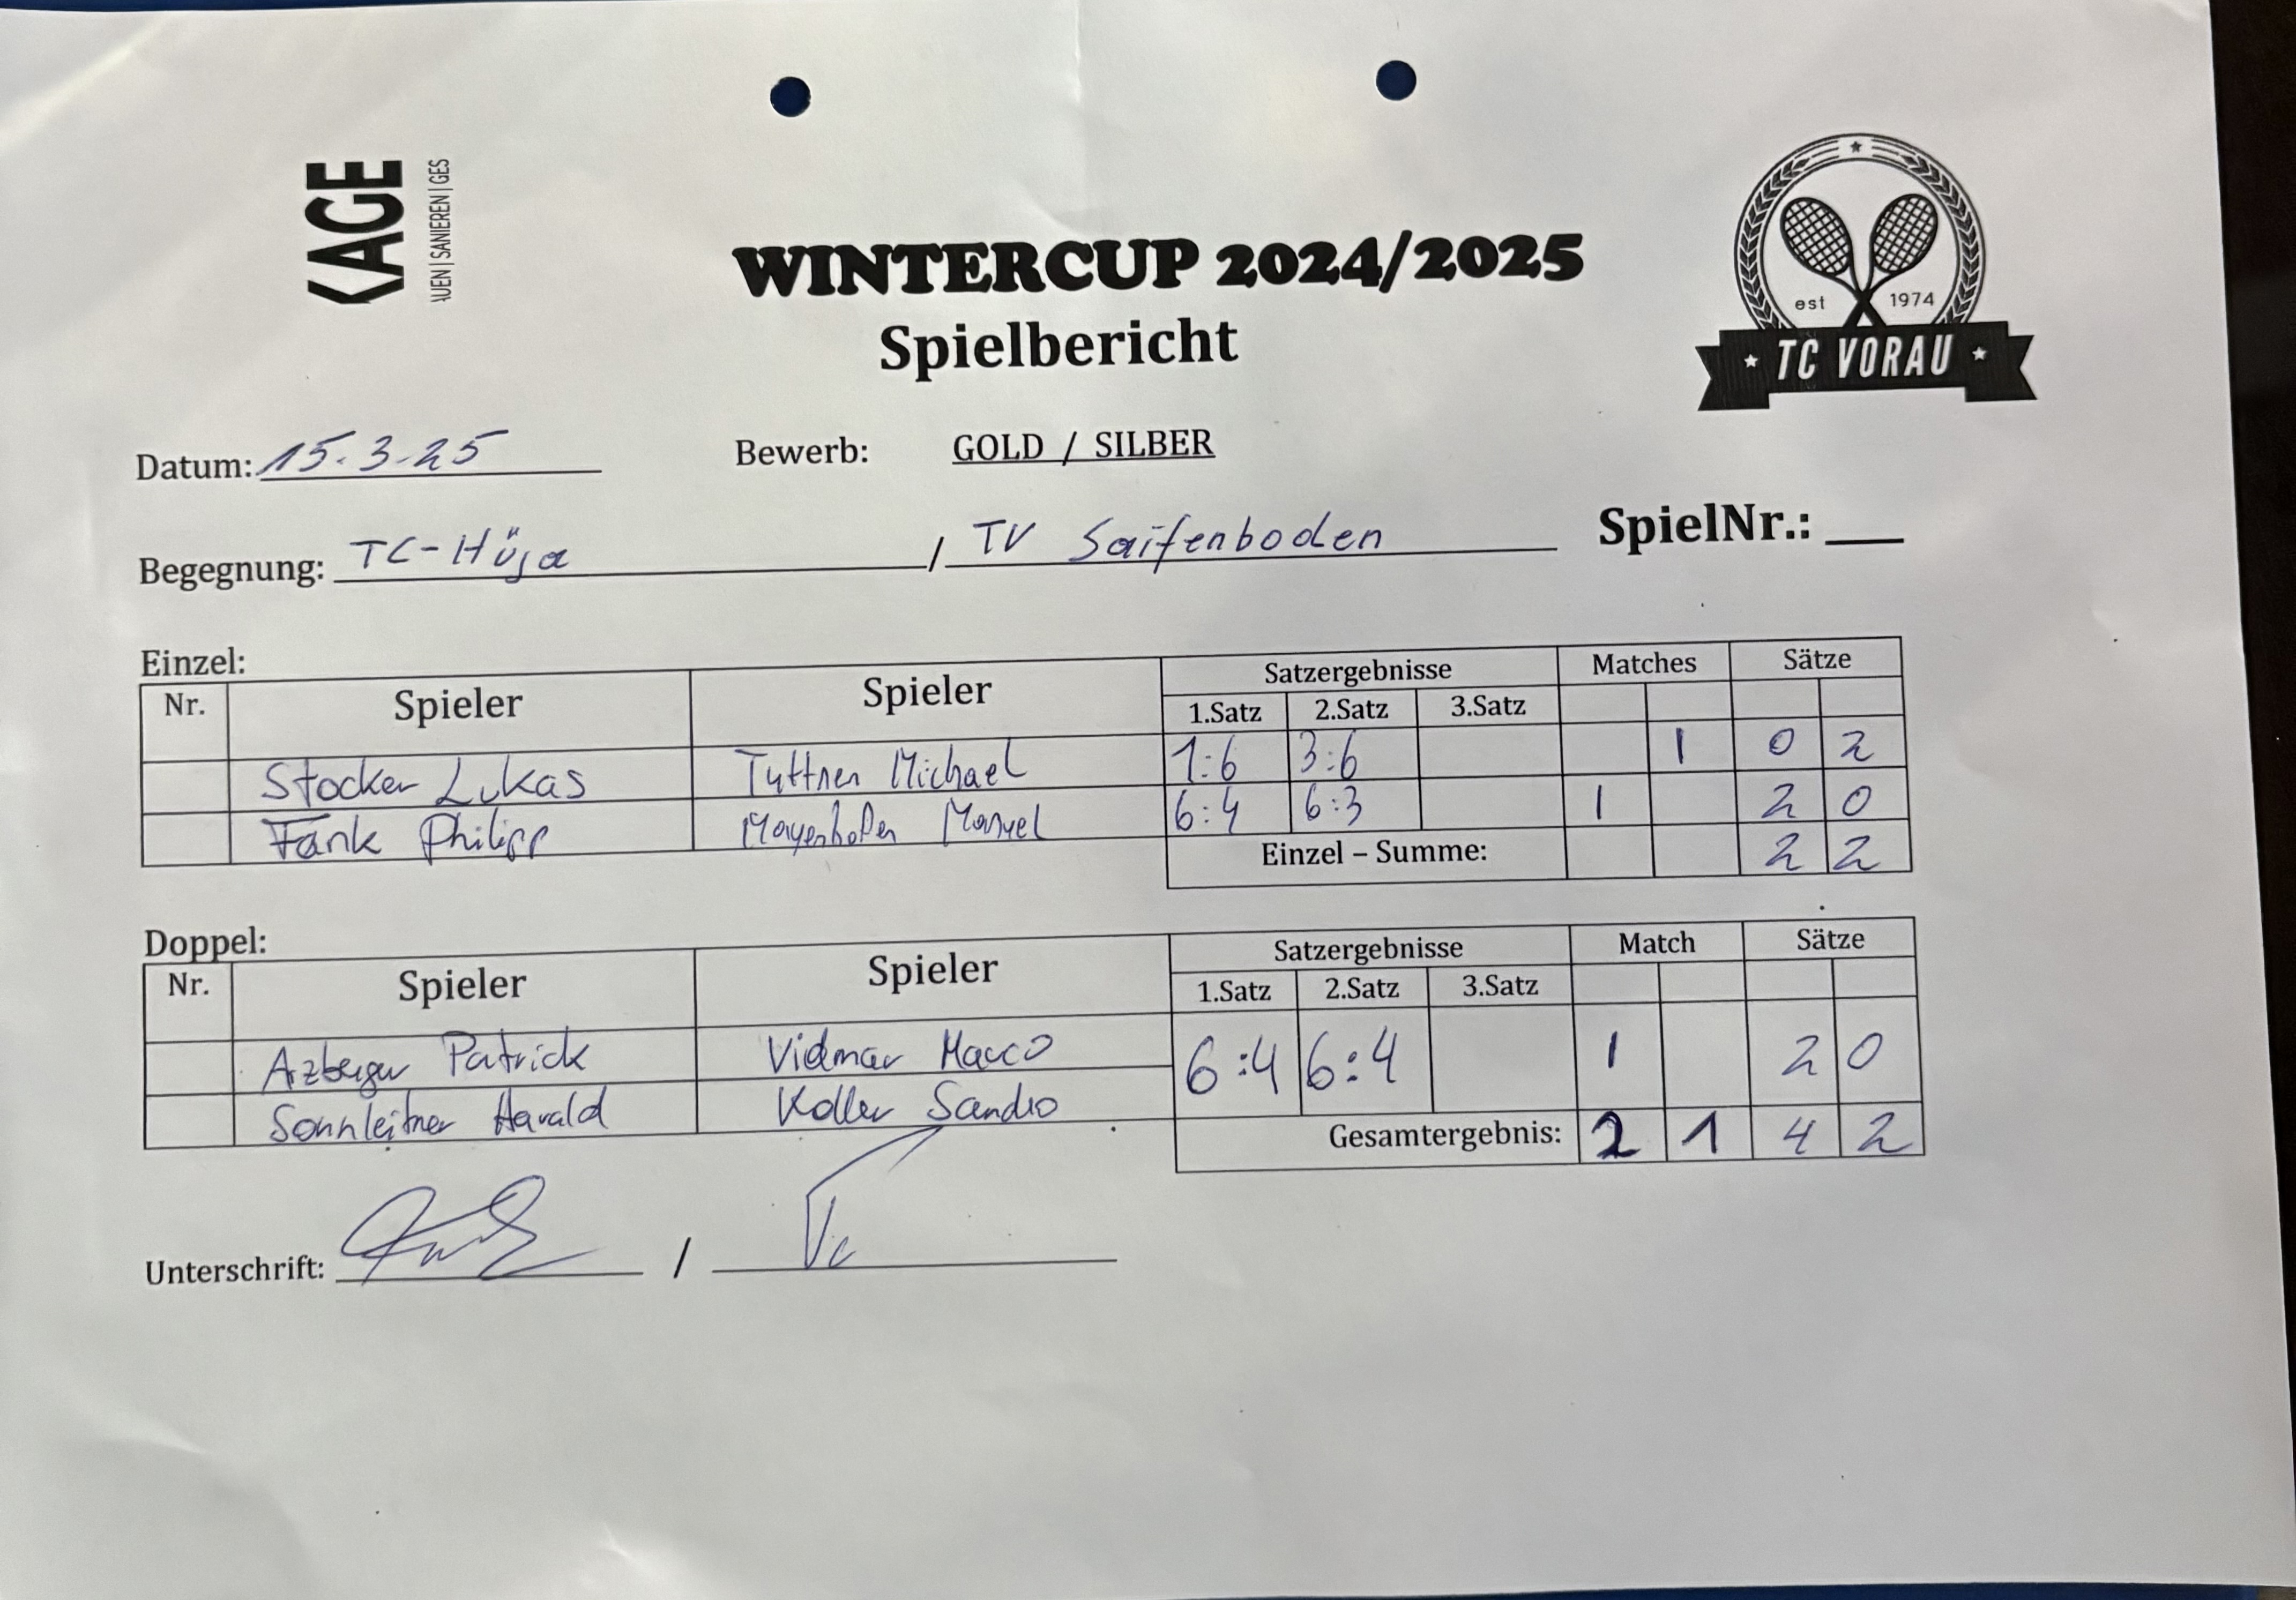 KAGE
AUEN | SANIEREN | GES
WINTERCUP 2024/2025
Spielbericht
est 1974
TC VORAU
Datum: 15.3.25 Bewerb: GOLD / SILBER
Begegnung: TC-Hüja / TV Saifenboden SpielNr.:
Einzel:
Nr. Spieler Spieler Satzergebnisse Matches Sätze
1.Satz 2.Satz 3.Satz
Stocker Lukas Tuttner Michael 1:6 3:6 1 0 2
Fank Philipp Mayerhofer Manuel 6:4 6:3 1 2 0
Einzel – Summe: 2 2
Doppel:
Nr. Spieler Spieler Satzergebnisse Match Sätze
1.Satz 2.Satz 3.Satz
Arzberger Patrick Vidmar Marco 6:4 6:4 1 2 0
Sonnleitner Harald Koller Sandro
Gesamtergebnis: 2 1 4 2
Unterschrift: /